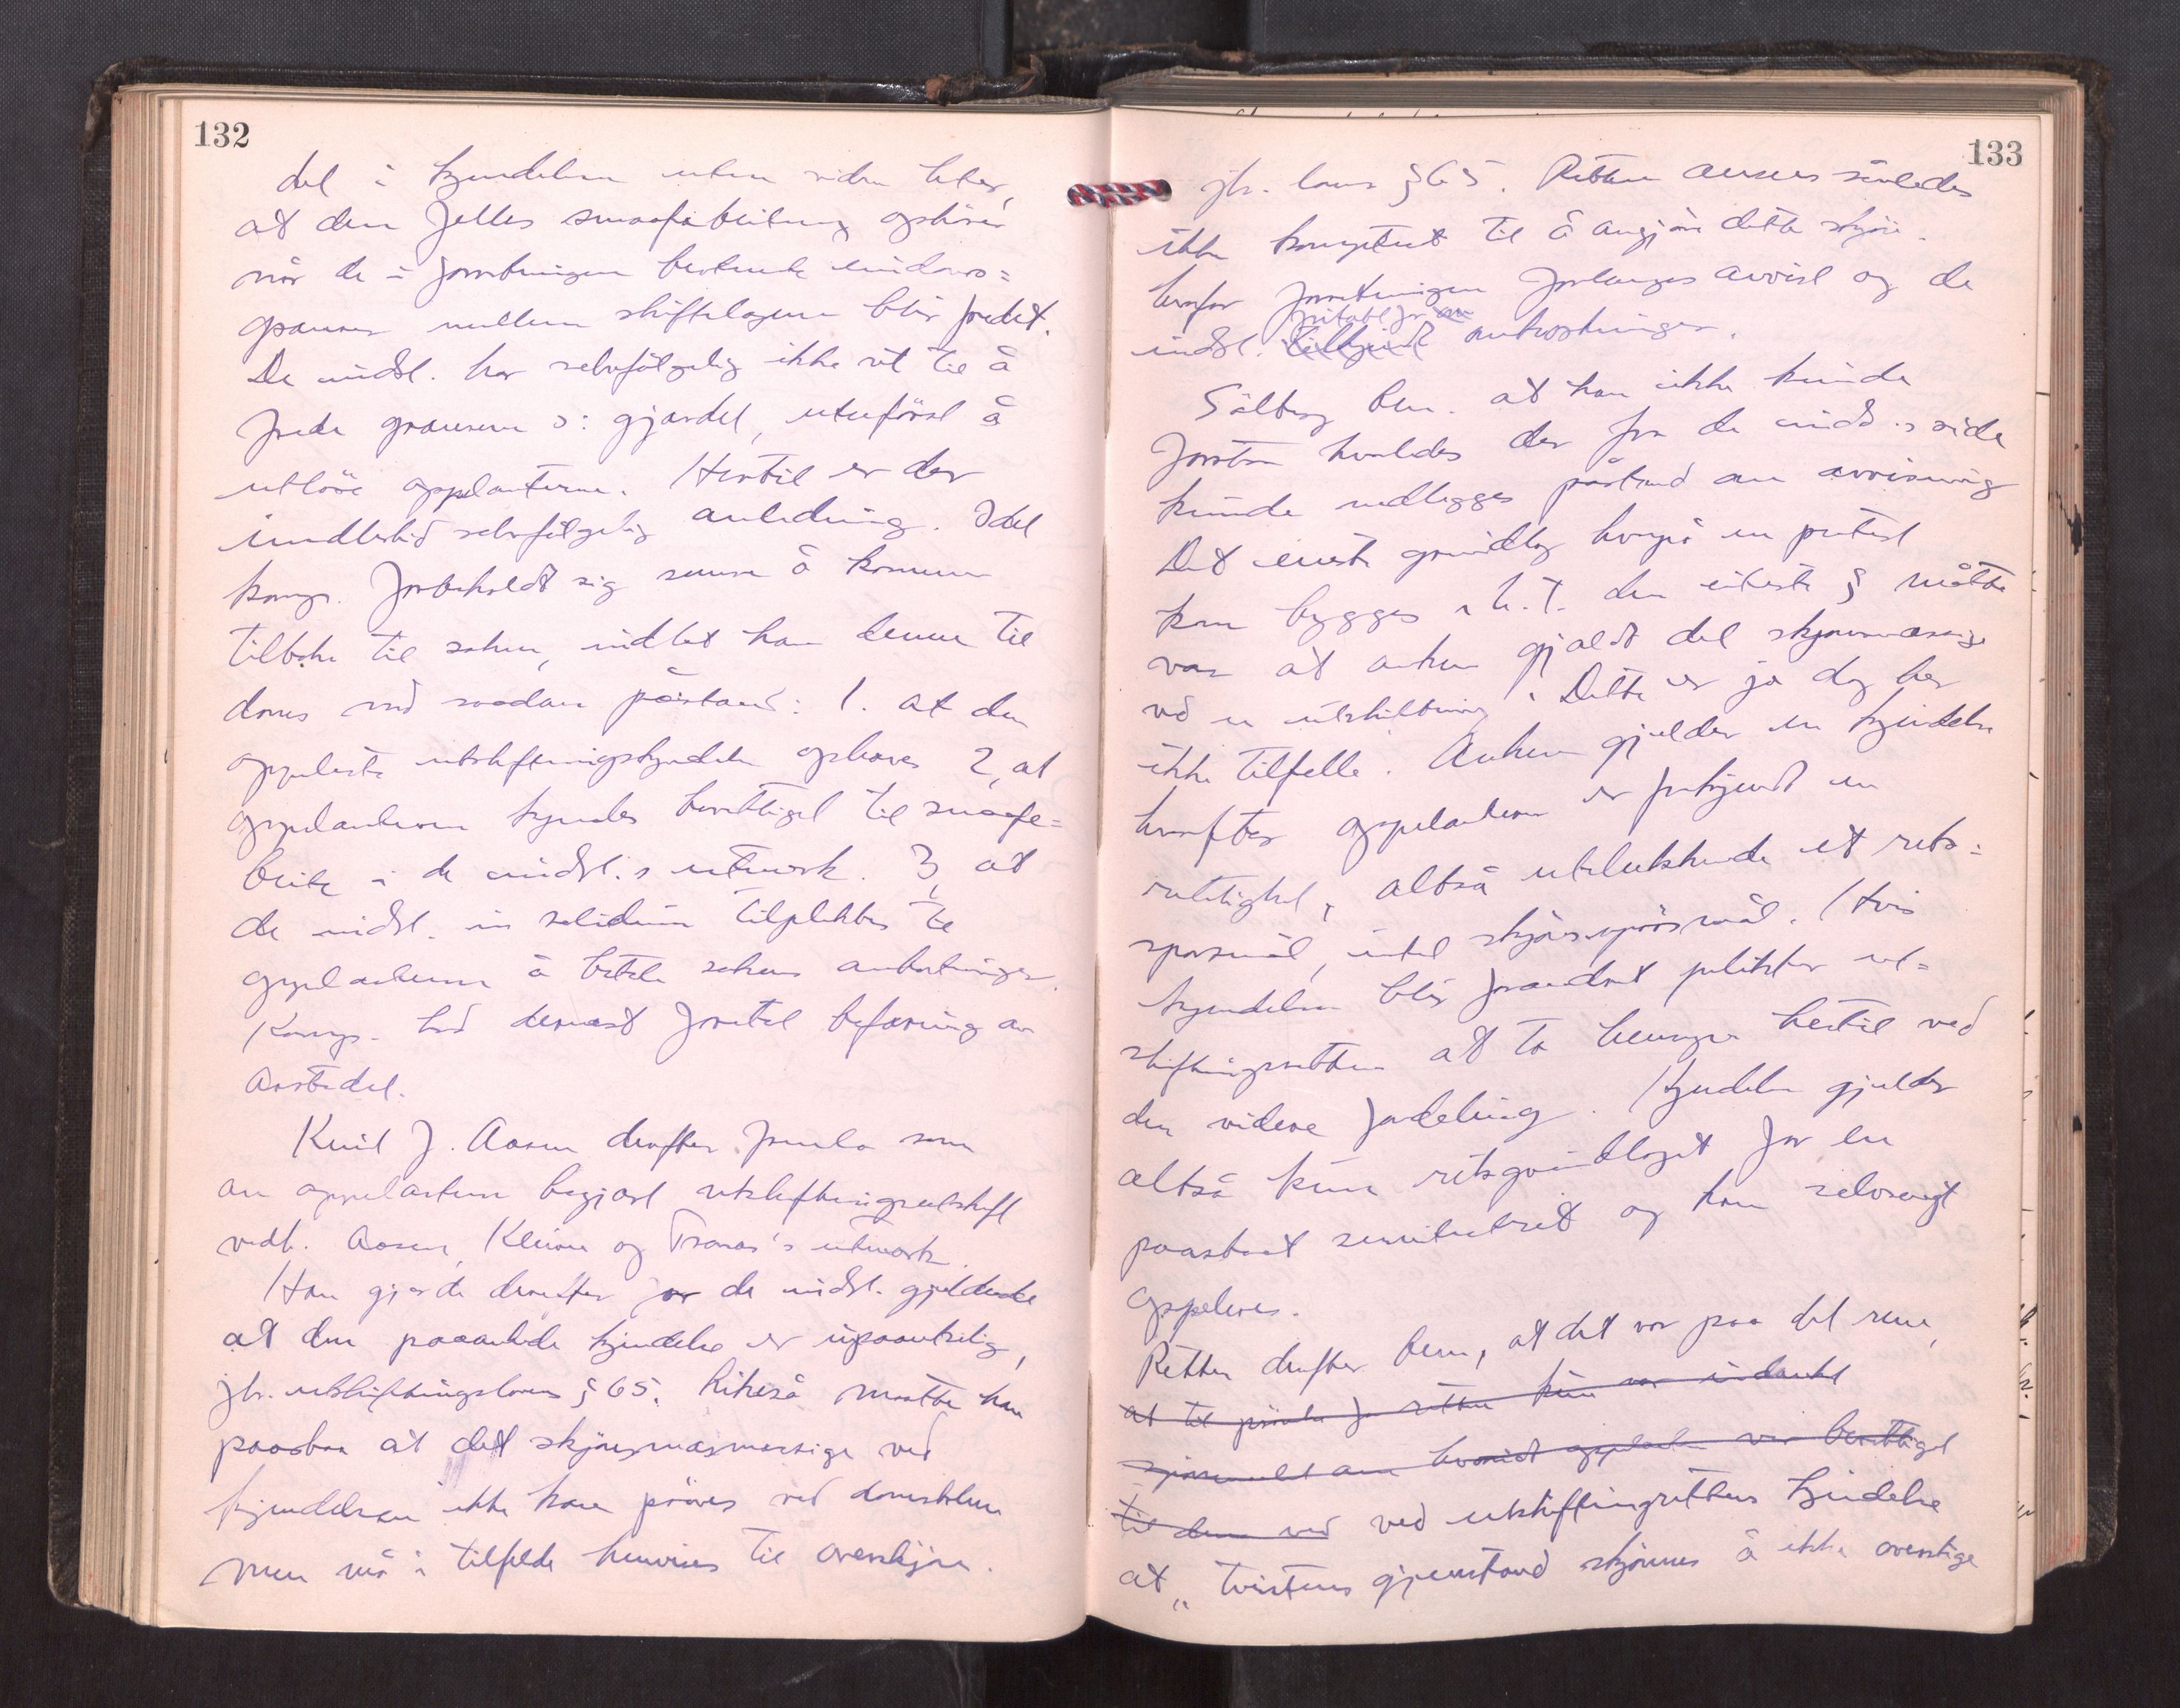 132
det i kjendelsen uten viden heter,
at den felles smaafebeitning ophører
når de i forretningen bestemte eiendoms=
grænser mellem skiftelagene blir fredet.
De indst. har selvfølgelig ikke ret til å
frede grænsene ɔ: gjærdet, uten først å
utløse appelanterne. Hertil er der
imidlertid selvfølgelig anledning. Idet
komp. forbeholdt sig senere å komme
tilbake til saken, indlot han denne til
doms med saadan påstand: 1. at den
appelerte utskiftningskjendelse ophæves 2, at
appelanterne kjendes berettiget til smaafe=
beite i de indst.s utmark. 3, at
de indst. in solidum tilpliktes til
appelanterne å betale sakens omkostninger.
Komp. bad dernæst foretat befaring av
aastedet.
Knut J. Aasen derefter fremla som
av appelanterne begjært utskiftningsutskrift
vedk. Aasen, Kleiven og Tranas's utmark.
Han gjorde derefter for de indst. gjeldende
at den paaankede kjendelse er upaaankelig,
jfr. utskiftningslovens § 65. Likeså maatte han
paastaa at det skjønsmæssige ved
kjendelsen ikke kan prøves ved domstolene
men må i tilfelde henvises til overskjøn.
133
jfr. lovens § 65. Retten ansees således
ikke kompetent til å avgjøre dette skjøn.
herfor forretningen forlanges avvist og de
fritatt for
indst. tilkjendt omkostninger.
Sølberg bem. at han ikke kunde
forstaa hvorledes der fra de indst.s side
kunde nedlegges påstand om avvisning
Det eneste grundlag hvorpå en protest
kan bygges i h.t. den citerte § måtte
være at anken gjaldt det skjønsmæssige
ved en utskiftning. Dette er jo dog her
ikke tilfelle. Anken gjelder en kjendelse
hvorefter appelanterne er frakjendt en
rettighet, altså utelukkende et rets=
spørsmål, intet skjønsspørsmål. Hvis
kjendelsen blir forandret plikter ut=
skiftningsretten at ta hensyn hertil ved
den videre fordeling. Kjendelsen gjelder
altså kun retsgrundlaget for en
paastaat servitutret og kan selvsagt
appeleres.
Retten derefter bem, at det var paa det rene,
at til prøvelse for retten kun var indanket
spørsmålet om hvorvidt appelanten var berettiget
til den ved ved utskiftningsrettens kjendelse
at „tvistens gjenstand skjønnes å ikke overstige